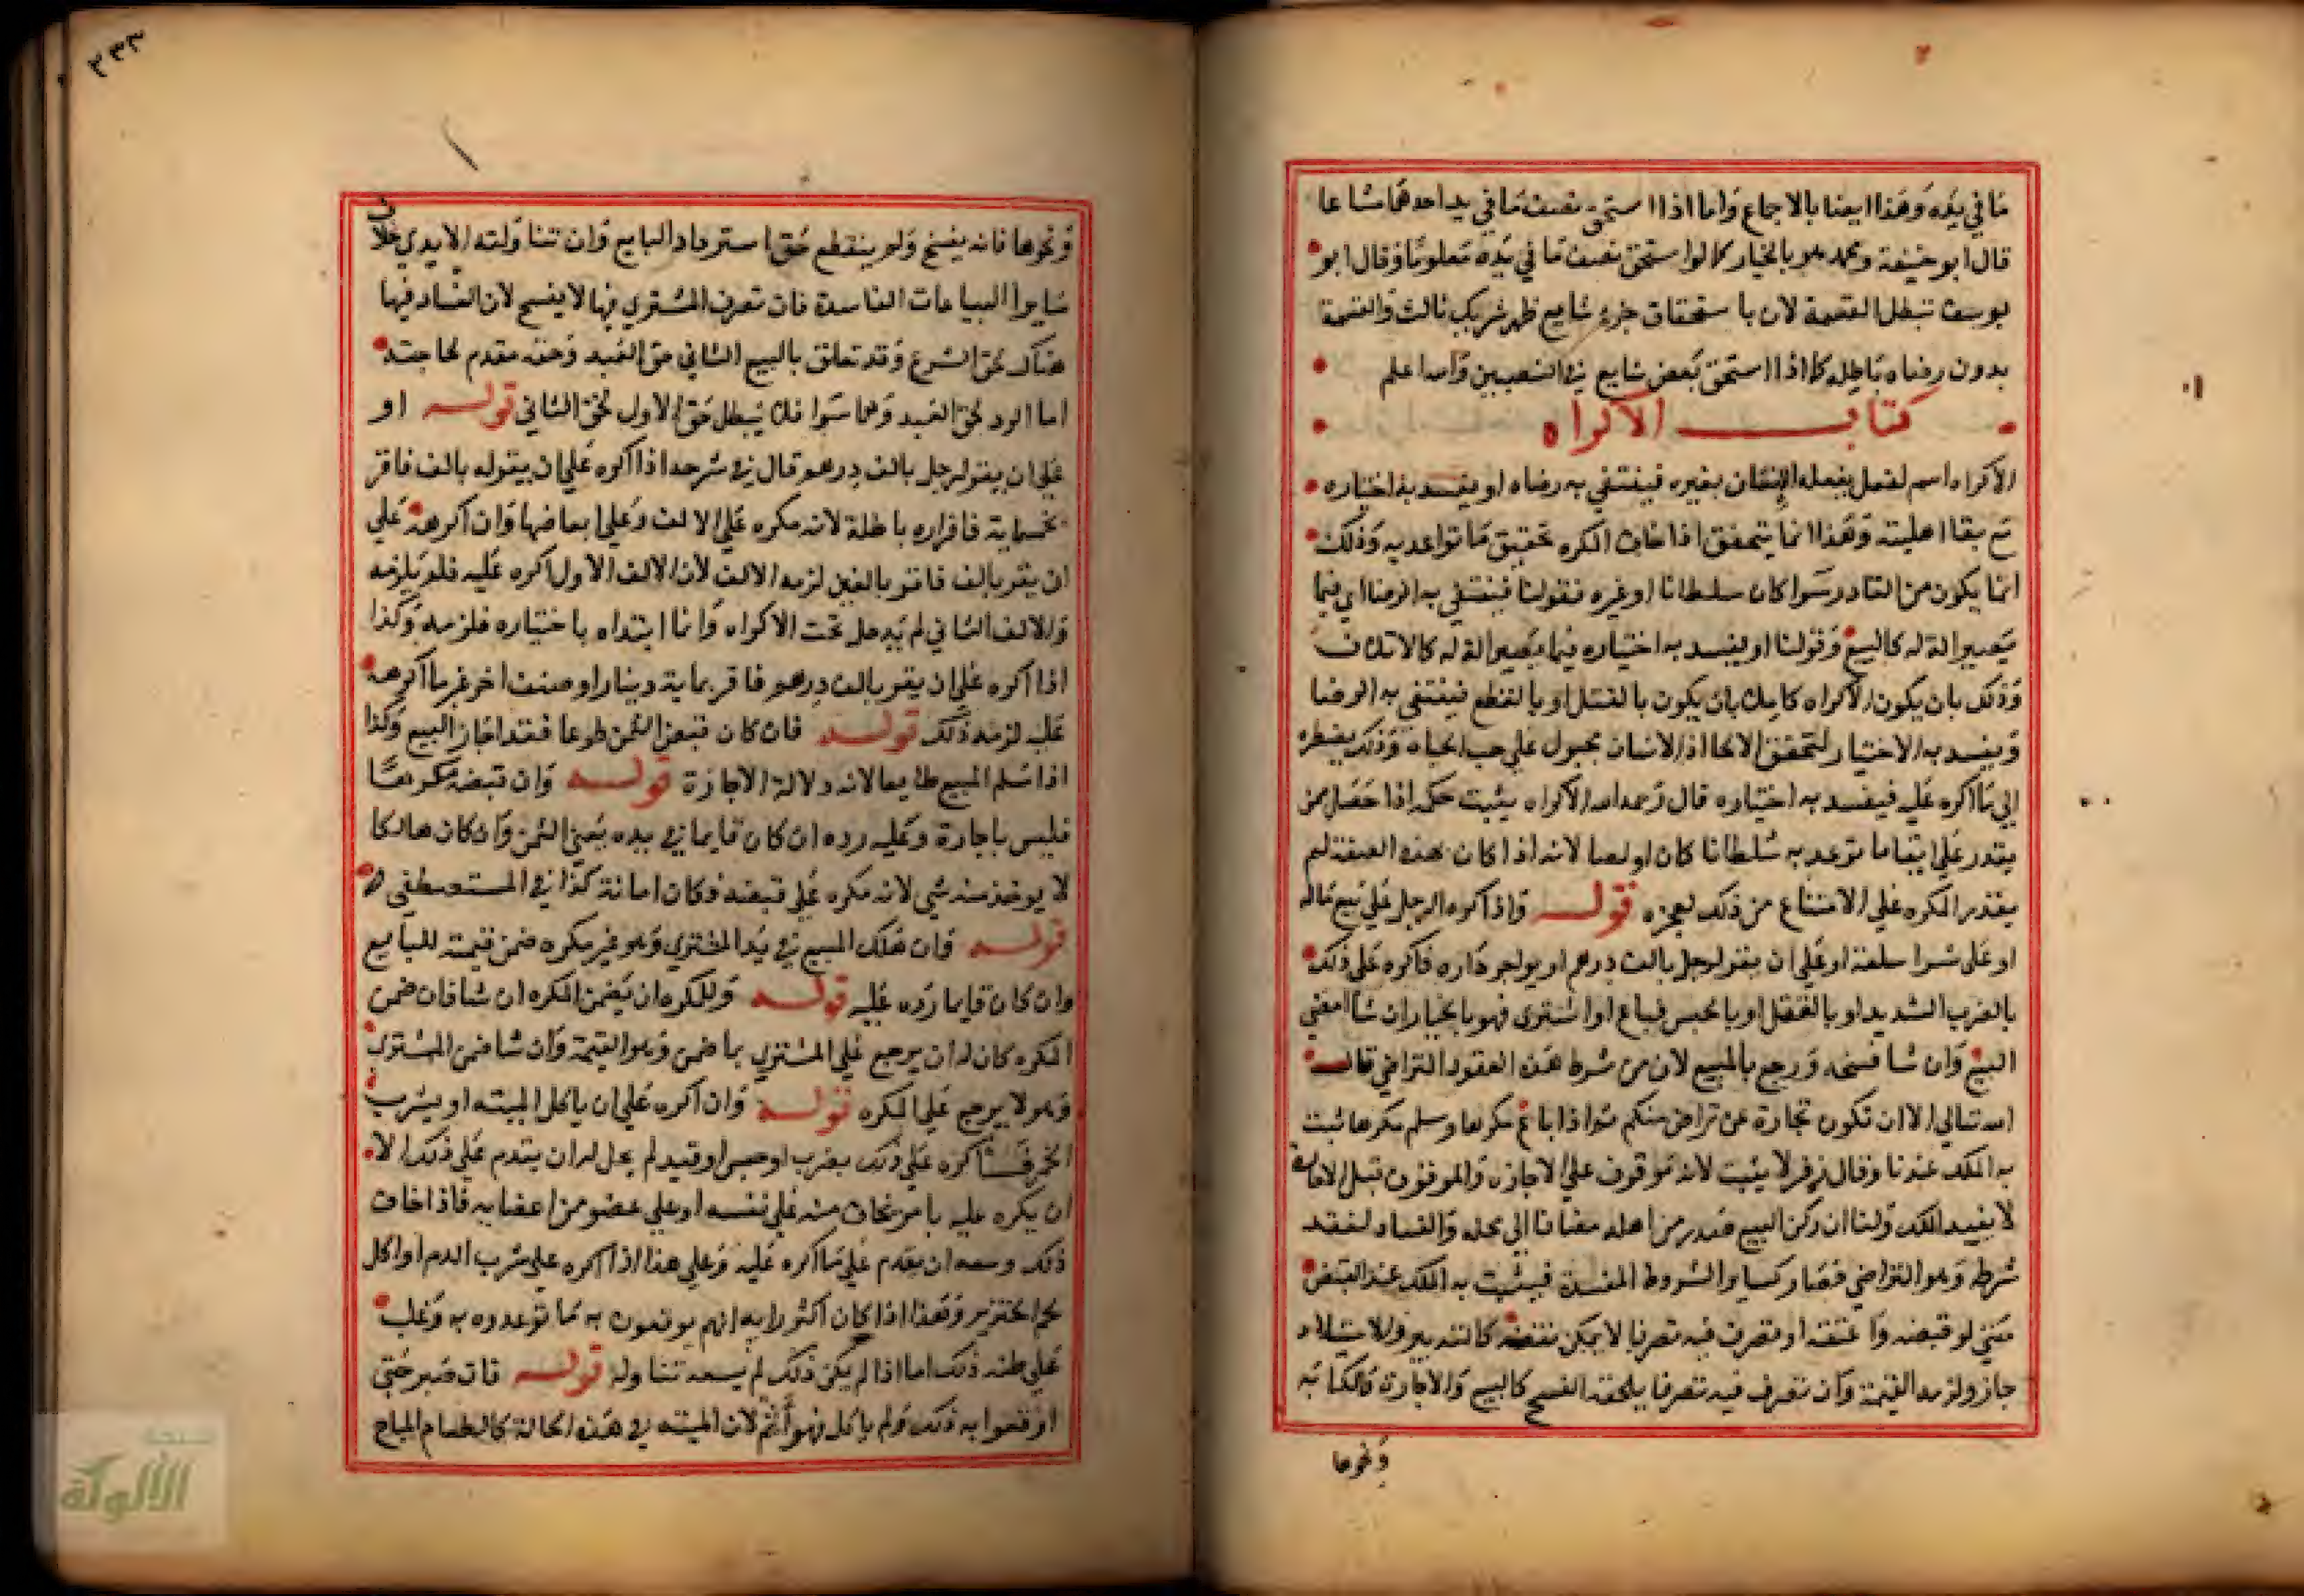 ما في يده وهذا ايضا بالاجماع واما اذا استحق نصف ما في يد احدهما مشاعا
قال ابو حنيفة ومحمد هو بالخيار كما لو استحق نصف ما في يده معلوما وقال ابو
يوسف تبطل القسمة لان باستحقاق جزء شايع ظهر شريك ثالث والقسمة
بدون رضاه باطلة كما اذا استحق بعض شايع في النصيبين والله اعلم
كتاب الاكراه
الاكراه اسم لفعل يفعله الانسان بغيره فينتفي به رضاه او يفسد به اختياره
مع بقا اهليته وهذا انما يتحقق اذا خاف المكره تحقيق ما تواعد به وذلك
انما يكون من القادر سوا كان سلطانا او غيره فقولنا فينتفي به الرضا اي فيما
يصير الة له كالبيع وقولنا او يفسد به اختياره فيما يصير الة له كالاتلاف
وذلك بان يكون الاكراه كاملا بان يكون بالقتل او بالقطع فينتفي به الرضا
ويفسد به الاختيار لتحقق الالجا اذ الانسان مجبول على حب الحياه وذلك يضطره
الى ما اكره عليه فيفسد به اختياره قال رحمه الله الاكراه يثبت حكمه اذا حصل ممن
يقدر على ايقاع ما توعد به سلطانا كان او لصا لانه اذا كان بهذه الصفة لم
يقدر المكره على الامتناع من ذلك لعجزه قوله واذا اكره الرجل على بيع ماله
او على شرا سلعة او على ان يقر لرجل بالف درهم او يواجر داره فاكره على ذلك
بالضرب الشديد او بالقتل او بالحبس فباع او اشترى فهو بالخيار ان شا امضى
البيع وان شا فسخه ورجع بالمبيع لان من شرط هذه العقود التراضي قال
الله تعالى الا ان تكون تجارة عن تراض منكم ثم اذا باع مكرها وسلم مكرها ثبت
به الملك عندنا وقال زفر لا يثبت لانه موقوف على الاجازه والموقوف قبل الاجازة
لا يفيد الملك ولنا ان ركن البيع صدر من اهله مضافا الى محله والفساد لفقد
شرطه وهو التراضي فصار كساير الشروط المفسدة فيثبت به الملك عند القبض
حتى لو قبضه واعتقه او تصرف فيه تصرفا لا يمكن نقضه كالتدبير والاستيلاد
جاز ولزمه القيمة وان تصرف فيه تصرفا يلحقه الفسخ كالبيع والاجارة والكتابه
ونحوها
٢٣٣
ونحوها فانه يفسخ ولم ينقطع حق استرداد البايع وان تناولته الايدي خلاف
سايرا البياعات الفاسدة فان تصرف المشتري فيها لا يفسخ لان الفساد فيها
هناك لحق الشرع وقد تعلق بالبيع الثاني حق العبد وحقه مقدم لحاجته
اما الرد لحق العبد وهما سوا فلا يبطل حق الاول لحق الثاني قوله او
على ان يقر لرجل بالف درهم قال في شرحه اذا اكره على ان يقر له بالف فاقر
بخمسماية فاقراره باطلة لانه مكره على الالف وعلى ابعاضها وان اكرهه على
ان يقر بالف فاقر بالفين لزمه الالف لان الالف الاول اكره عليه فلم يلزمه
والالف الثاني لم يدخل تحت الاكراه وانما ابتداه باختياره فلزمه وكذا
اذا اكره على ان يقر بالف درهم فاقر بماية دينار او صنف اخر غير ما اكرهه
عليه لزمه ذلك قوله فان كان قبض الثمن طوعا فقد اجاز البيع وكذا
اذا سلم المبيع طايعا لانه دلالة الاجازة قوله وان قبضه مكرها
فليس باجازة وعليه رده ان كان قايما في يده يعني الثمن وان كان هالكا
لا يوخذ منه شي لانه مكره على قبضه فكان امانة كذا في المستصفى
قوله وان هلك المبيع في يد المشتري وهو غير مكره ضمن قيمته للبايع
وان كان قايما رده عليه قوله وللمكره ان يضمن المكره ان شا فان ضمن
المكره كان له ان يرجع على المشتري بما ضمن وهو القيمة وان شا ضمن المشتري
وهو لا يرجع على المكره قوله وان اكره على ان ياكل الميته او يشرب
الخمر فاكره على ذلك بضرب او حبس او قيد لم يحل له ان يقدم على ذلك الا
ان يكره عليه بامر يخاف منه على نفسه او على عضو من اعضايه فاذا خاف
ذلك وسعه ان يقدم على ما اكره عليه وعلى هذا اذا اكره على شرب الدم او اكل
لحم الخنزير وهذا اذا كان اكثر رايه انهم يوقعون به ما توعدوه به وغلب
على ظنه ذلك اما اذا لم يكن ذلك لم يسعه تناوله قوله فان صبر حتى
اوقعوا به ذلك ولم ياكل فهو آثم لان الميته في هذه الحالة كالطعام المباح
شبكة
الألوكة